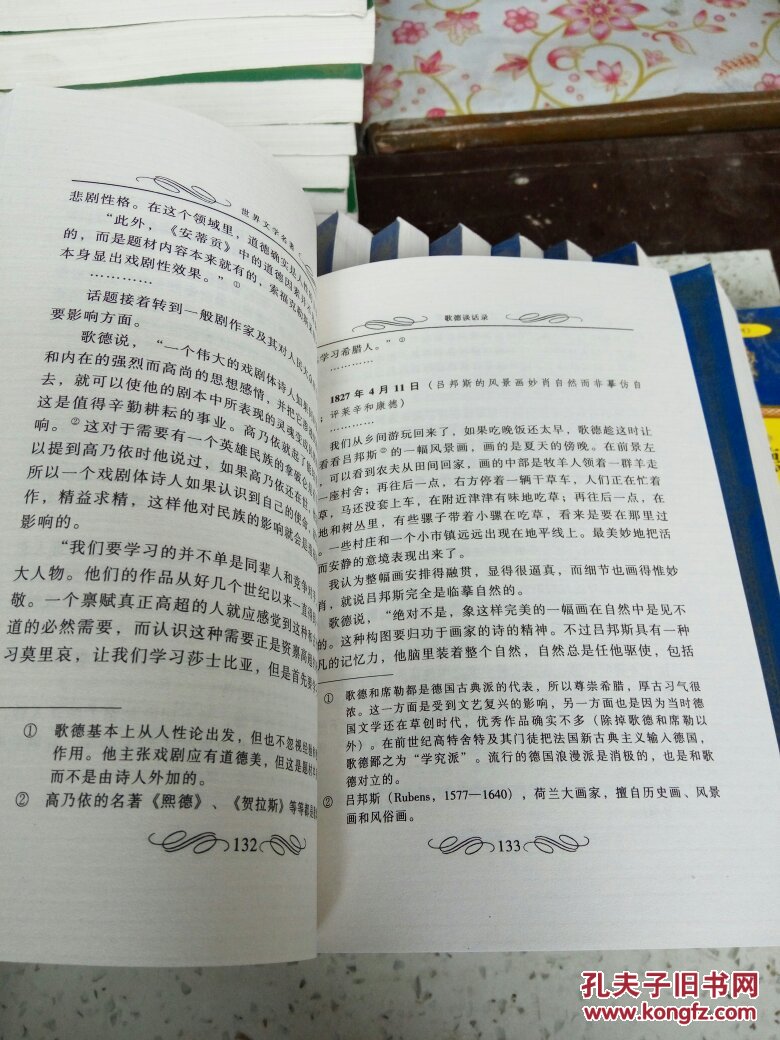 世界文学名著
悲剧性格。在这个领域里,道德确实是人
“此外,《安蒂贡》中的道德因素
的,而是题材内容本来就有的,索福克
本身显出戏剧性效果。”①
…………
话题接着转到一般剧作家及其对人民大
要影响方面。
歌德说,“一个伟大的戏剧体诗人如果
和内在的强烈而高尚的思想感情,并把它
去,就可以使他的剧本中所表现的灵魂变
这是值得辛勤耕耘的事业。高乃依就起了
响。②这对于需要有一个英雄民族的拿破
以提到高乃依时他说过,如果高乃依还在
所以一个戏剧体诗人如果认识到自己的使命,
作,精益求精,这样他对民族的影响就会是
影响的。
“我们要学习的并不单是同辈人和竞争对
大人物。他们的作品从好几个世纪以来一直得
敬。一个禀赋真正高超的人就应感觉到这种和
道的必然需要,而认识这种需要正是资禀高超
习莫里哀,让我们学习莎士比亚,但是首先要
① 歌德基本上从人性论出发,但也不忽视经
作用。他主张戏剧应有道德美,但这是题材
而不是由诗人外加的。
② 高乃依的名著《熙德》、《贺拉斯》等等都是
132
歌德谈话录
学习希腊人。”①
…………
1827 年 4 月 11 日(吕邦斯的风景画妙肖自然而非摹仿自
;评莱辛和康德)
我们从乡间游玩回来了,如果吃晚饭还太早,歌德趁这时让
看看吕邦斯②的一幅风景画,画的是夏天的傍晚。在前景左
,可以看到农夫从田间回家,画的中部是牧羊人领着一群羊走
一座村舍;再往后一点,右方停着一辆干草车,人们正在忙着
草,马还没套上车,在附近津津有味地吃草;再往后一点,在
地和树丛里,有些骡子带着小骡在吃草,看来是要在那里过
一些村庄和一个小市镇远远出现在地平线上。最美妙地把活
而安静的意境表现出来了。
我认为整幅画安排得融贯,显得很逼真,而细节也画得惟妙
肖,就说吕邦斯完全是临摹自然的。
歌德说,“绝对不是,象这样完美的一幅画在自然中是见不
的。这种构图要归功于画家的诗的精神。不过吕邦斯具有一种
凡的记忆力,他脑里装着整个自然,自然总是任他驱使,包括
① 歌德和席勒都是德国古典派的代表,所以尊崇希腊,厚古习气很
浓。这一方面是受到文艺复兴的影响,另一方面也是因为当时德
国文学还在草创时代,优秀作品确实不多(除掉歌德和席勒以
外)。在前世纪高特舍特及其门徒把法国新古典主义输入德国,
歌德鄙之为“学究派”。流行的德国浪漫派是消极的,也是和歌
德对立的。
② 吕邦斯(Rubens,1577—1640),荷兰大画家,擅自历史画、风景
画和风俗画。
133
孔夫子旧书网
www.kongfz.com